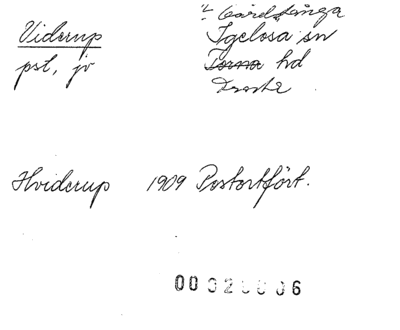 Viderup
pst, jv
Gårdstånga
Igelosa sn
Torna hd
Hviderup 1909 Postortfört.